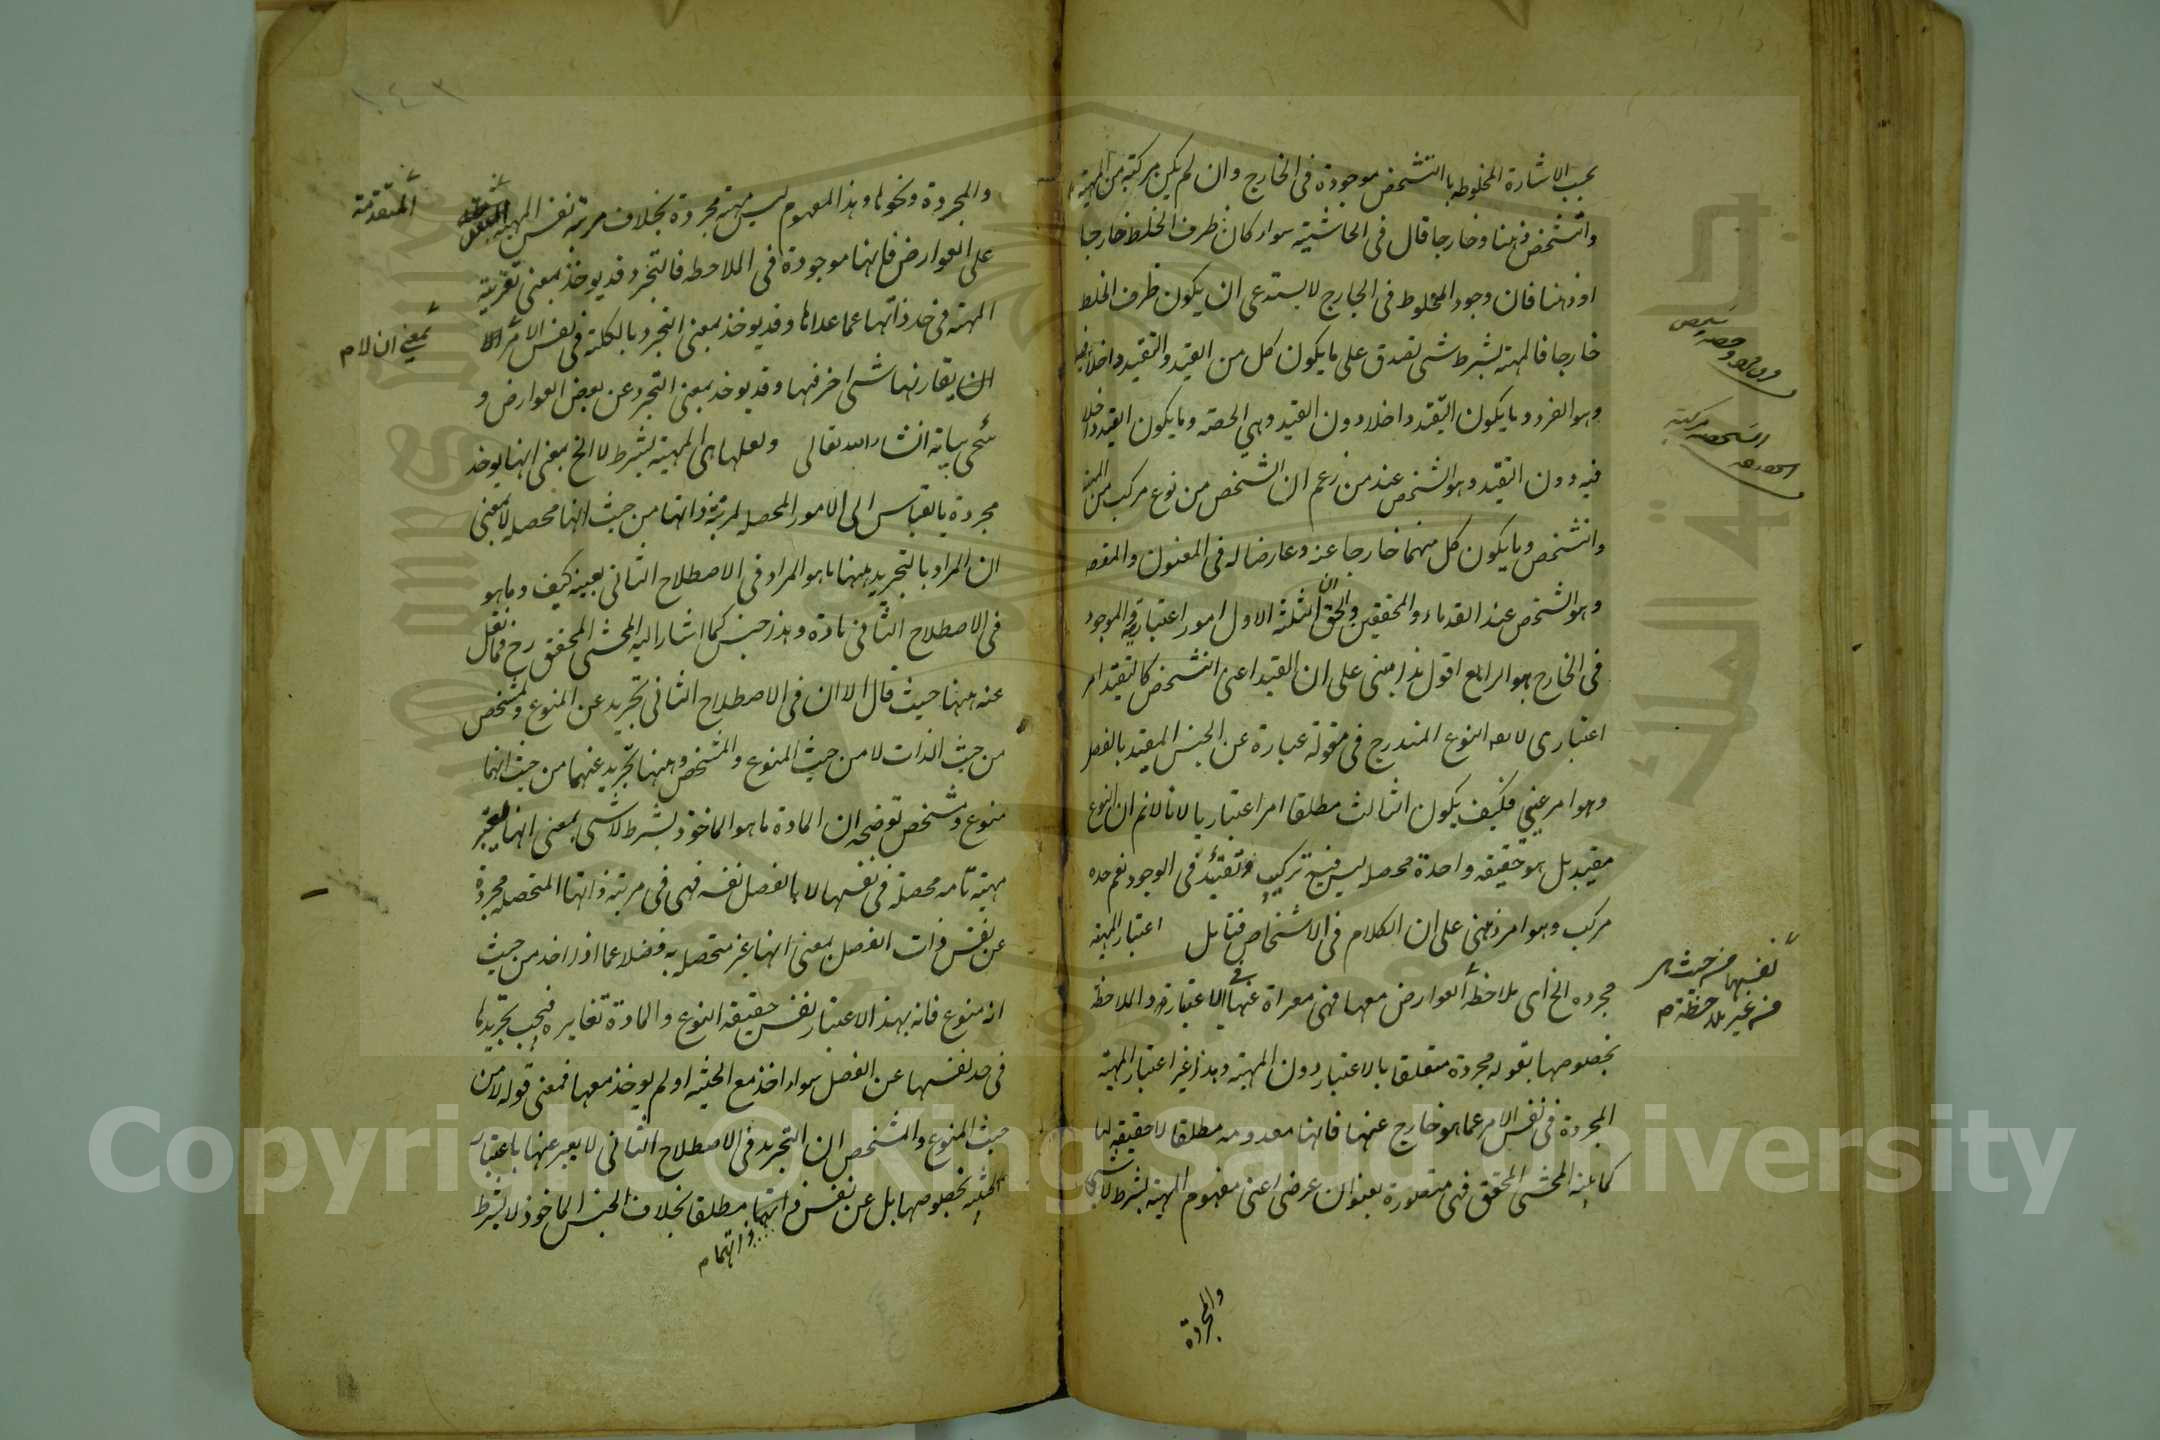 بحسب الاشارة المخلوطه بالتشخص موجودة فى الخارج وان لم يكن مركبة من المهية
والتشخص ذهنا وخارجا قال فى الحاشية سواء كان ظرف الخلط خارجا
او ذهنا فان وجود المخلوط فى الخارج لا يستدعى ان يكون ظرف الخلط
خارجا فالمهية بشرط شى تصدق على ما يكون كل من القيد والتقييد داخلا فيه
وهو الفرد وما يكون التقيد داخلا دون القيد وهى الحصة وما يكون القيد داخلا
فيه دون التقيد وهو الشخص عند من زعم ان الشخص من نوع مركب من المهية
والتشخص وما يكون كل منهما خارجا عنه وعارضا له فى المعنون والمقصد
وهو الشخص عند القدماء والمحققين والحق ان الثلثة الاول امور اعتبارية والموجود
فى الخارج هو الرابع اقول هذا مبنى على ان القيد اعنى التشخص كالتقيد امر
اعتبارى النوع المندرج فى مقولة عبارة عن الجنس المقيد بالفصل
وهو امر عينى فكيف يكون الثالث مطلقا امرا اعتباريا لانا لانم ان النوع
مقيد بل هو حقيقة واحدة محصله ليس فيه تركيب وتقيد فى الوجود نعم حده
مركب وهو امر ذهنى على ان الكلام فى الاشخاص فتامل اعتبار المهية
مجرده الخ اى بلاحظة العوارض معها فهى معراة عنها فى الاعتبار والملاحظة
بخصوصها بقوله مجردة متعلقا بالاعتبار دون المهية وهذا غير اعتبار المهية
المجردة فى نفس الامر عما هو خارج عنها فانها معدومه مطلقا لا حقيقة لها
كما بينه المحشى المحقق فهى متصورة بعنوان عرضى اعنى مفهوم المهية بشرط لا شى
والمجردة
نفسها من حيث هى
من غير ملاحظة م
والمجردة ونحوها وهذا المفهوم ليس مهية مجردة بخلاف مرتبة نفس المهية
المتقدمة
على العوارض فانها موجودة فى الملاحظه فالتجرد قد يوخذ بمعنى تعرية
المهية فى حد ذاتها عما عداها وقد يوخذ بمعنى التجرد بالكلية فى نفس الامر
بمعنى ان لا م
ان يقارنها شى اخر فيها وقد يوخذ بمعنى التجرد عن بعض العوارض و
سيجى بيانه انشاء الله تعالى ولعلها اى المهية بشرط لا الخ بمعنى انها يوخذ
مجردة بالقياس الى الامور المحصله لمرتبة ذاتها من حيث انها محصله لا بمعنى
ان المراد بالتجريد ههنا ما هو المراد فى الاصطلاح الثانى بعينه كيف وما هو
فى الاصطلاح الثانى مادة وهذا جنس كما اشار اليه المحشى المحقق رح فيما نقل
عنه ههنا حيث قال الا ان فى الاصطلاح الثانى تجريد عن المنوع والمشخص
من حيث الذات لا من حيث المنوع والمشخص وههنا تجريد عنهما من حيث انهما
منوع ومشخص توضيحه ان المادة ما هو الماخوذ بشرط لا شى بمعنى انها يعتبر
مهية تامه محصلة فى نفسها لا بالفصل نفسه فهى فى مرتبة ذاتها المتحصله مجردة
عن نفس ذات الفصل بمعنى انها غير متحصله به فضلا عما اذا اخذ من حيث
انه منوع فانه بهذا الاعتبار نفس حقيقة النوع والمادة تغايره فيجب تجريدها
فى حد نفسها عن الفصل سواء اخذ مع الحيثية او لم يوخذ معها فمعنى قوله لا من
حيث المنوع والمشخص ان التجريد فى الاصطلاح الثانى لا يعبر عنها باعتبار
الحيثية بخصوصها بل عن نفس ذاتهما مطلقا بخلاف الجنس الماخوذ لا بشرط
ذاتهما م
Copyright © King Saud University